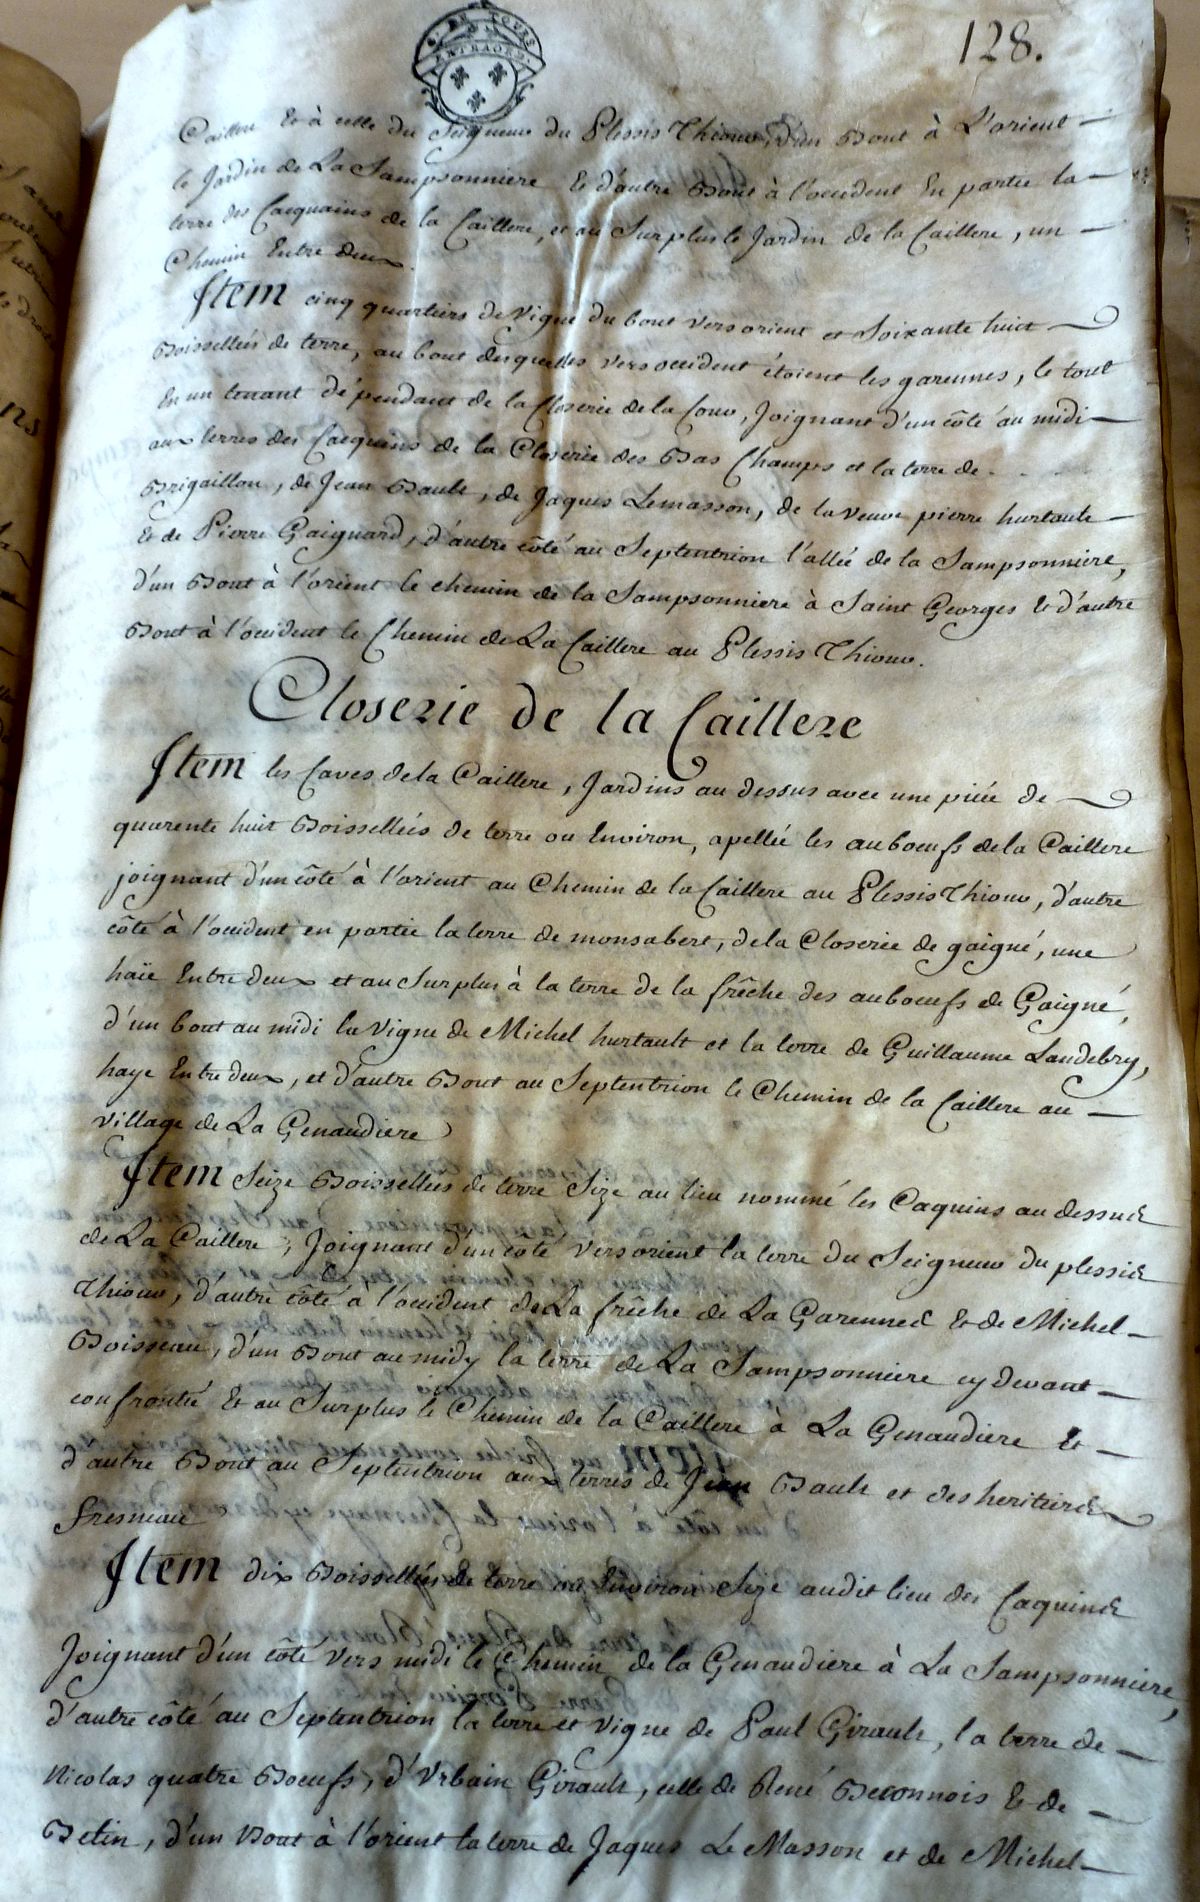 128.
G. DE TOURS
EXTRAORD.
Caillere Et à celle du Seigneur du Plessis Thiour, d'un Bout à L'orient
le Jardin de La Sampsonniere Et d'autre Bout à l'occident En partie la
terre des Cacquains de la Caillere, et au Surplus le Jardin de la Caillere, un
Chemin Entre deux.
Item cinq quartiers de vigne du bout vers orient et Soixante huit
Boissellées de terre, au bout desquelles vers occident étoient les garennes, le tout
En un tenant dépendant de la Closerie de la Cour, Joignant d'un côté au midi
aux terres des Cacquins de la Closerie des Bas Champs et la terre de
Brigaillon, de Jean Bault, de Jaques Lemasson, de la veuve pierre hurtault
Et de Pierre Gaignard, d'autre côté au Septentrion l'allée de la Sampsonniere,
d'un Bout à l'orient le chemin de la Sampsonniere à Saint Georges Et d'autre
Bout à l'occident le Chemin de La Caillere au Plessis Thiour.
Closerie de la Caillere
Item les Caves de la Caillere, Jardins au dessus avec une piéce de
quarente huit Boissellées de terre ou Environ, apellée les auboeufs de la Caillere
joignant d'un côté à l'orient au Chemin de la Caillere au Plessis Thiour, d'autre
côté à l'occident en partie la terre de monsabert, de la Closerie de gaigné, une
haïe Entre deux et au Surplus à la terre de la frêche des auboeufs de Gaigné,
d'un bout au midi la vigne de Michel hurtault et la terre de Guillaume Landebry,
haye Entre deux, et d'autre Bout au Septentrion le Chemin de la Caillere au
village de La Genaudiere
Item Seize Boissellées de terre Size au lieu nommé les Caquins au dessus
de La Caillere, Joignant d'un côté vers orient la terre du Seigneur du plessis
Thiour, d'autre côté à l'occident de La frêche de La Garennes Et de Michel
Boisseau, d'un Bout au midy la terre de La Sampsonniere cy devant
confrontée Et au Surplus le Chemin de la Caillere à La Genaudiere Et
d'autre Bout au Septentrion aux terres de Jean Bault et des heritiers
fresneau
Item dix Boissellées de terre ou Environ Size audit lieu des Caquins
Joignant d'un côté vers midi le Chemin de la Genaudiere à La Sampsonniere,
d'autre côté au Septentrion la terre et vigne de Paul Girault, la terre de
Nicolas quatre Boeufs, d'Urbain Girault, celle de René Beconnois Et de
Betin, d'un Bout à l'orient la terre de Jaques Le Masson et de Michel